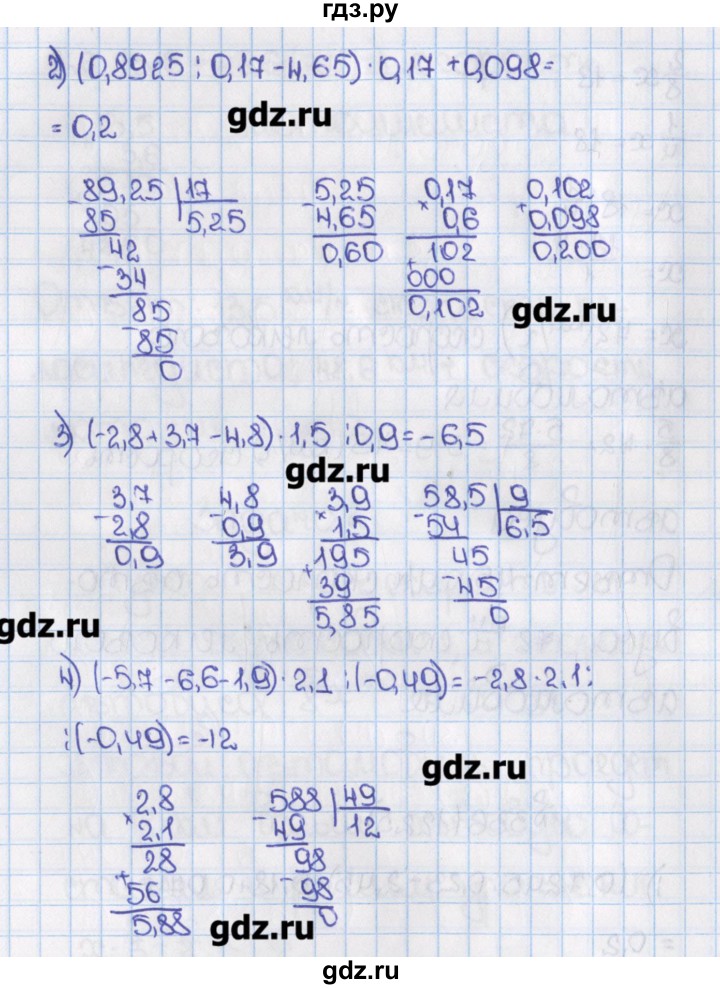 гдз.ру
2) (0,8925 : 0,17 - 4,65) · 0,17 + 0,098 =
gdz.ru
= 0,2
89,25 | 17 5,25 0,17 0,102
- 85 5,25 - 4,65 × 0,6 + 0,098
42 0,60 102 0,200
- 34 + 000
85 0,102
gdz.ru
- 85
0
3) (-2,8 + 3,7 - 4,8) · 1,5 : 0,9 = -6,5
gdz.ru
3,7 4,8 3,9 58,5 | 9
- 2,8 - 0,9 × 1,5 - 54 6,5
0,9 3,9 195 45
+ 39 - 45
5,85 0
gdz.ru
4) (-5,7 - 6,6 - 1,9) · 2,1 : (-0,49) = -2,8 · 2,1 :
: (-0,49) = -12
gdz.ru
2,8 588 | 49
× 2,1 - 49 12
28 98
+ 56 - 98
5,88 0
gdz.ru
gdz.ru